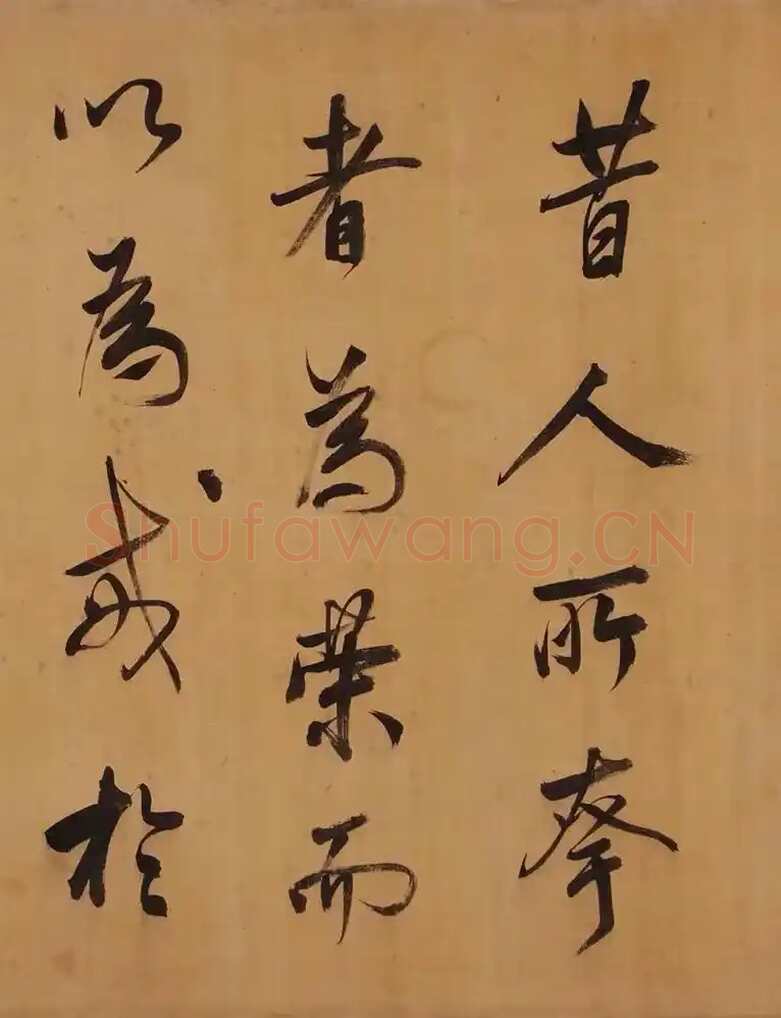 昔人所夸
者為榮而
以為戒於
Shufawang.CN